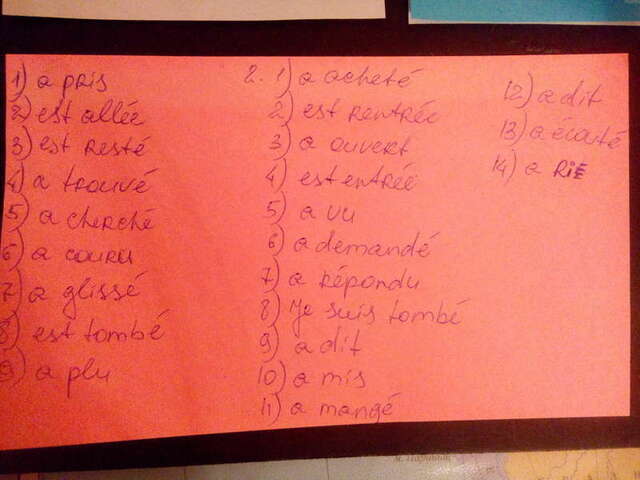 1) a pris
2) est allée
3) est resté
4) a trouvé
5) a cherché
6) a couru
7) a glissé
8) est tombé
9) a plu
2. 1) a acheté
2) est rentrée
3) a ouvert
4) est entrée
5) a vu
6) a demandé
7) a répondu
8) Je suis tombé
9) a dit
10) a mis
11) a mangé
12) a dit
13) a écouté
14) a RiE